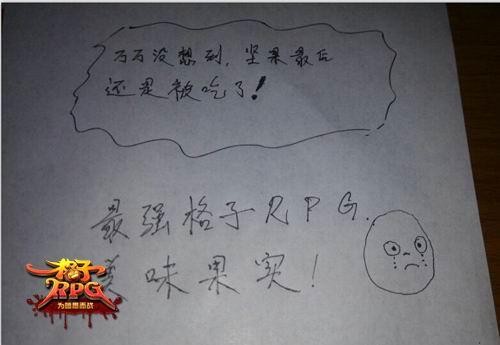 万万没想到,坚果最后
还是被吃了!
最强格子RPG.
美味果实!
格子
RPG
为萌思而战